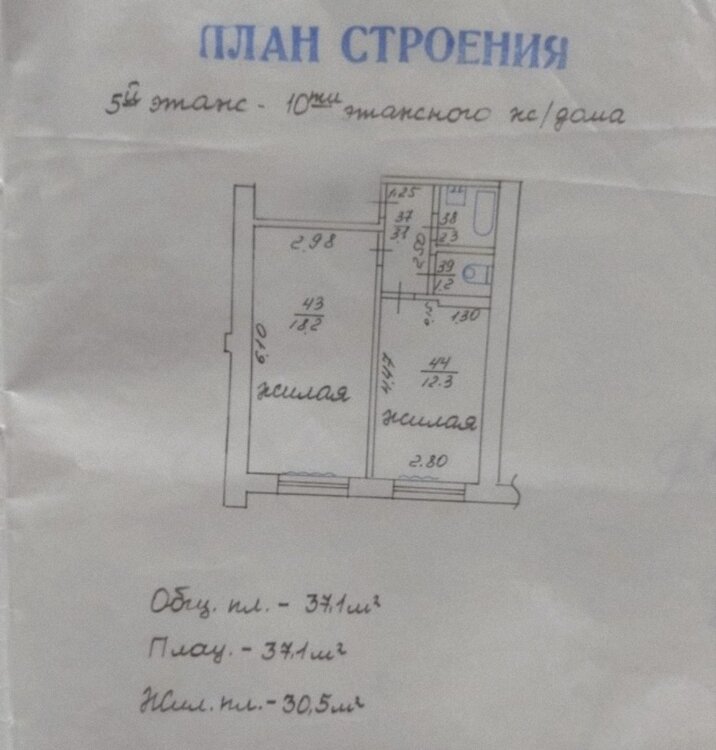 ПЛАН СТРОЕНИЯ
5й этаж - 10ти этажного ж/дома
1.25
37
3.1
38
2.3
2.98
2.50
39
1.2
43
18.2
1.30
6.10
44
12.3
4.47
жилая
жилая
2.80
Общ. пл. - 37,1м²
Площ. - 37,1м²
Жил. пл. - 30,5м²